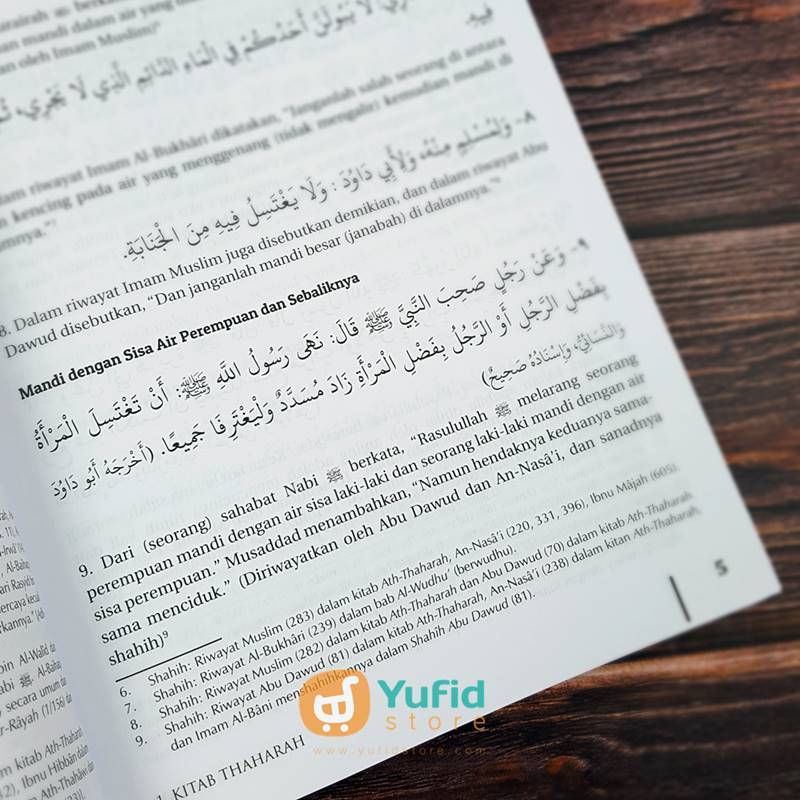 airah ﷺ berka
an mandi dalam air yang m
an oleh Imam Muslim)
لَا يَبُولَنَّ أَحَدُكُمْ فِي الْمَاءِ الدَّائِمِ الَّذِي لَا يَجْرِي، ثُمَّ
فِيهِ
lam riwayat Imam Al-Bukhâri dikatakan, "Janganlah salah seorang di antara
n kencing pada air yang menggenang (tidak mengalir) kemudian mandi di
amnya."⁷
٨- وَلِمُسْلِمٍ مِنْهُ، وَلِأَبِي دَاوُدَ: وَلَا يَغْتَسِلُ فِيهِ مِنَ الْجَنَابَةِ.
8. Dalam riwayat Imam Muslim juga disebutkan demikian, dan dalam riwayat Abu
Dawud disebutkan, "Dan janganlah mandi besar (janabah) di dalamnya."⁸
Mandi dengan Sisa Air Perempuan dan Sebaliknya
٩- وَعَنْ رَجُلٍ صَحِبَ النَّبِيَّ ﷺ قَالَ: نَهَى رَسُولُ اللَّهِ ﷺ: أَنْ تَغْتَسِلَ الْمَرْأَةُ
بِفَضْلِ الرَّجُلِ أَوْ الرَّجُلُ بِفَضْلِ الْمَرْأَةِ زَادَ مُسَدَّدٌ وَلْيَغْتَرِفَا جَمِيعًا. (أَخْرَجَهُ أَبُو دَاوُدَ
وَالنَّسَائِيُّ، وَإِسْنَادُهُ صَحِيحٌ)
9. Dari (seorang) sahabat Nabi ﷺ berkata, "Rasulullah ﷺ melarang seorang
perempuan mandi dengan air sisa laki-laki dan seorang laki-laki mandi dengan air
sisa perempuan." Musaddad menambahkan, "Namun hendaknya keduanya sama-
sama menciduk." (Diriwayatkan oleh Abu Dawud dan An-Nasâ'i, dan sanadnya
shahih)⁹
6. Shahih: Riwayat Muslim (283) dalam kitab Ath-Thaharah, An-Nasâ'i (220, 331, 396), Ibnu Mâjah (605).
7. Shahih: Riwayat Al-Bukhâri (239) dalam bab Al-Wudhu' (berwudhu).
8. Shahih: Riwayat Muslim (282) dalam kitab Ath-Thaharah dan Abu Dawud (70) dalam kitab Ath-Thaharah
9. Shahih: Riwayat Abu Dawud (81) dalam kitab Ath-Thaharah, An-Nasâ'i (238) dalam kitan Ath-Thaharah,
dan Imam Al-Bâni menshahihkannya dalam Shahîh Abu Dawud (81).
1. KITAB THAHARAH
5
bin Al-Walid
secara umum
r-Râyah (1/156)
m kitab Ath-Thaharah
Ibnu Hibbân dalam
Ath-Thahâwi
Yufid
store
www.yufidstore.com